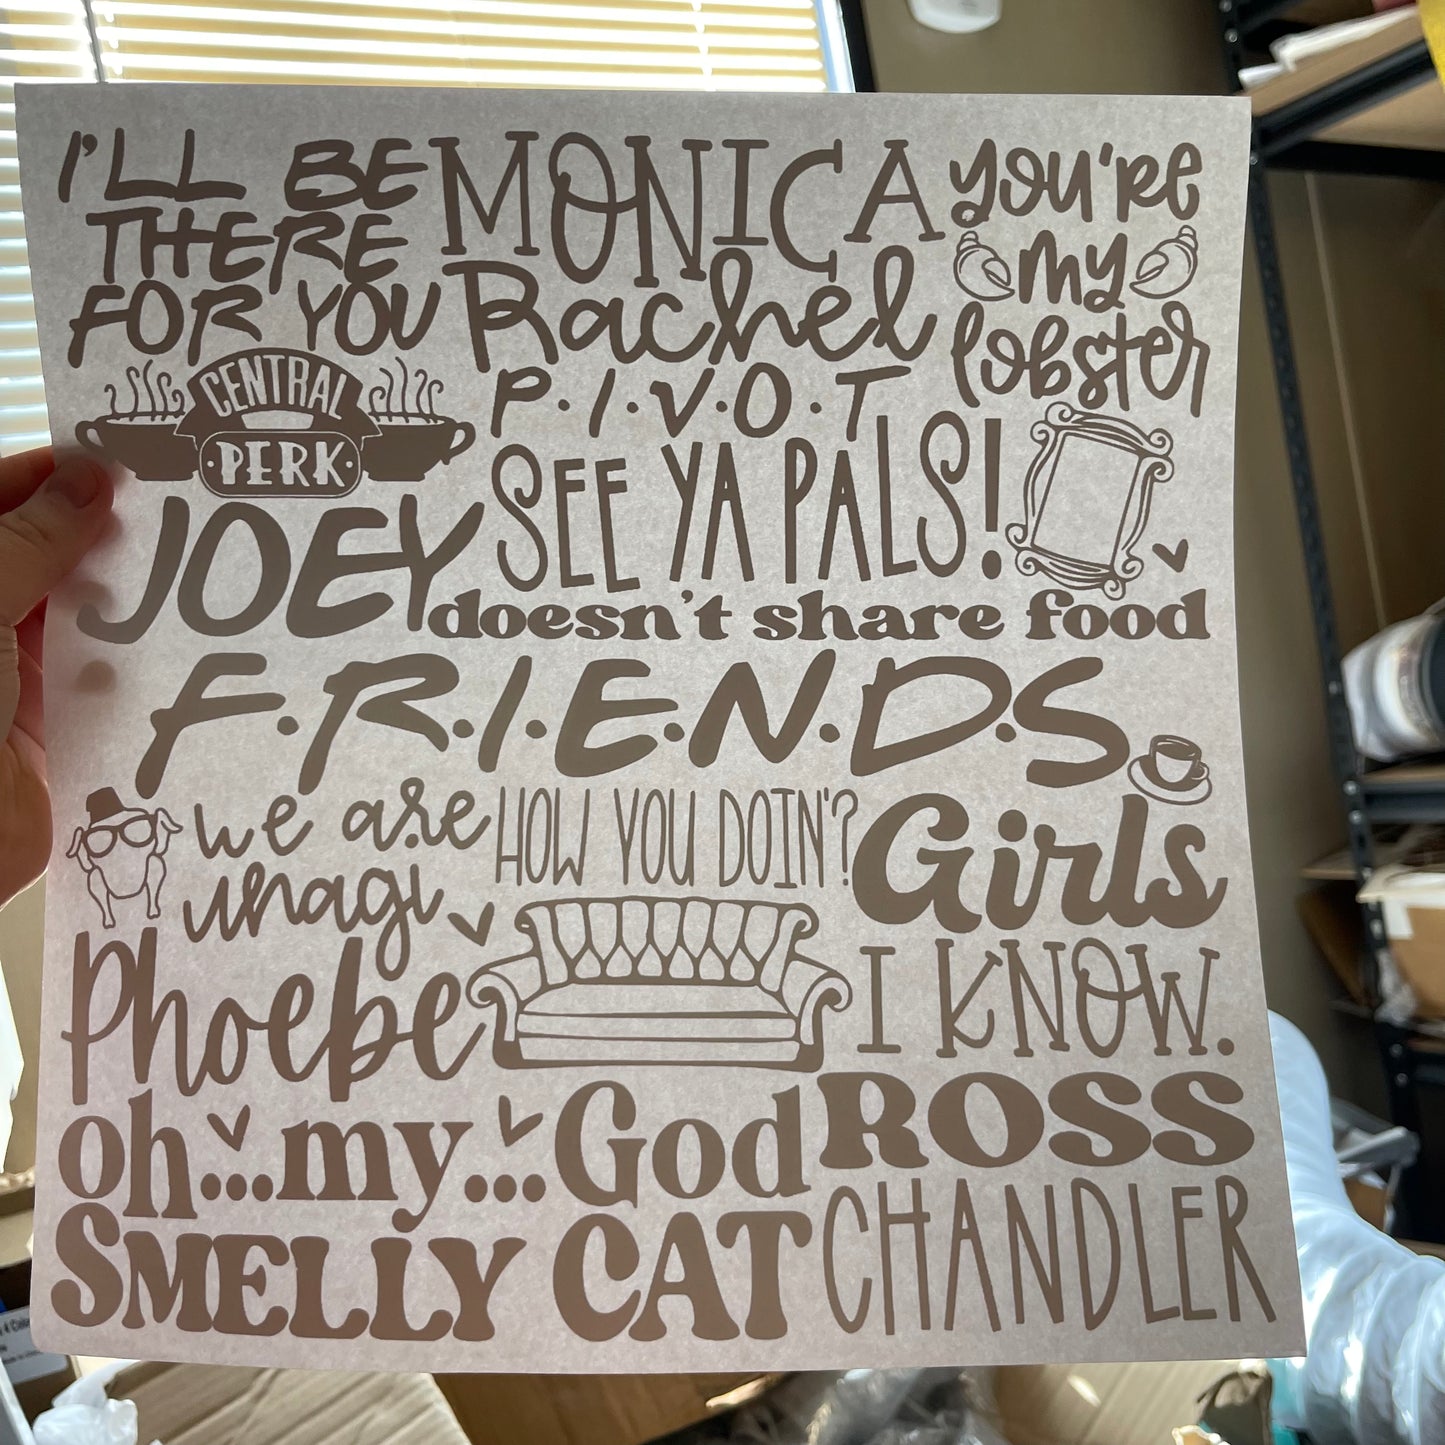 I'LL BE
THERE
FOR YOU
MONICA
Rachel
you're
my
lobster
CENTRAL
PERK
P.I.V.O.T
SEE YA PALS!
JOEY
doesn't share food
F.R.I.E.N.D.S
we are
unagi
HOW YOU DOIN'?
Girls
I KNOW.
Phoebe
oh...my...God
ROSS
SMELLY CAT
CHANDLER